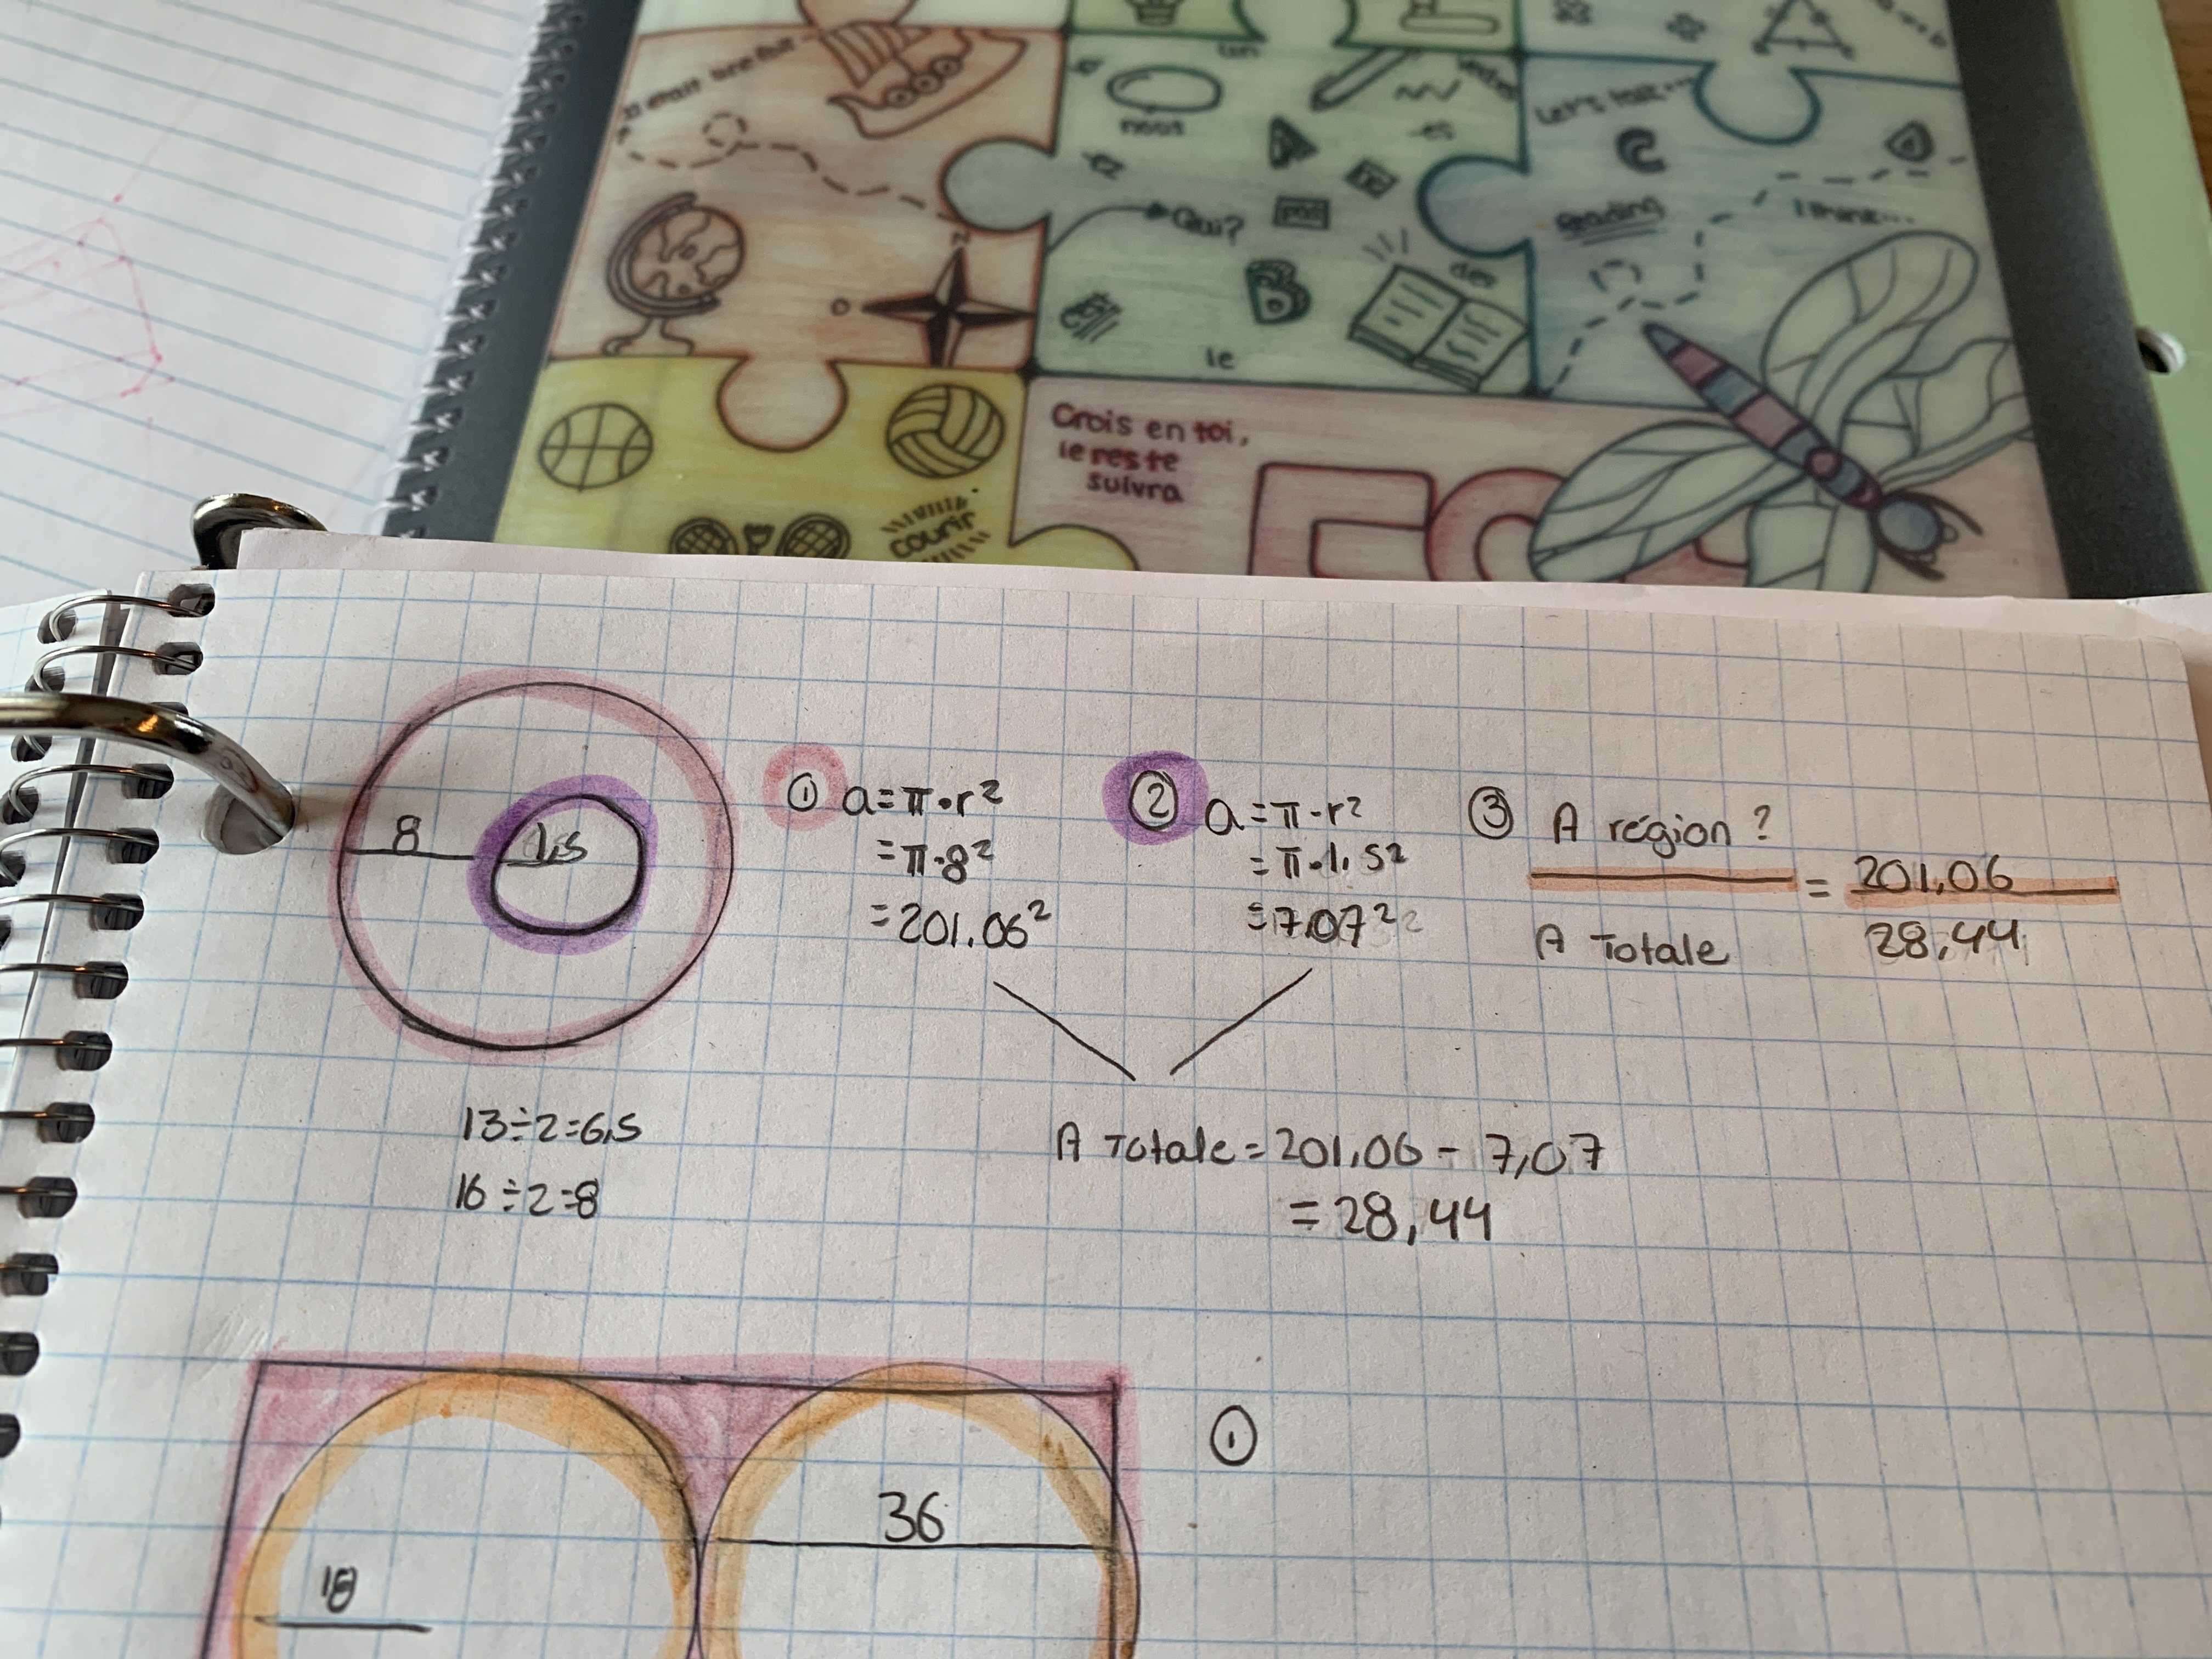 Il était une fois...
un
nous
es
Qui?
pas
est
B
des
le
N
O
Let's talk...
C
Reading
I think...
Crois en toi,
le reste
suivra
courir
8
1,5
① a=π·r²
=π·8²
=201.06²
② a=π·r²
=π·1,5²
=7,07²
③ A région ?
A Totale
= 201,06
28,44
13÷2=6,5
16÷2=8
A Totale = 201,06 - 7,07
= 28,44
18
36
①